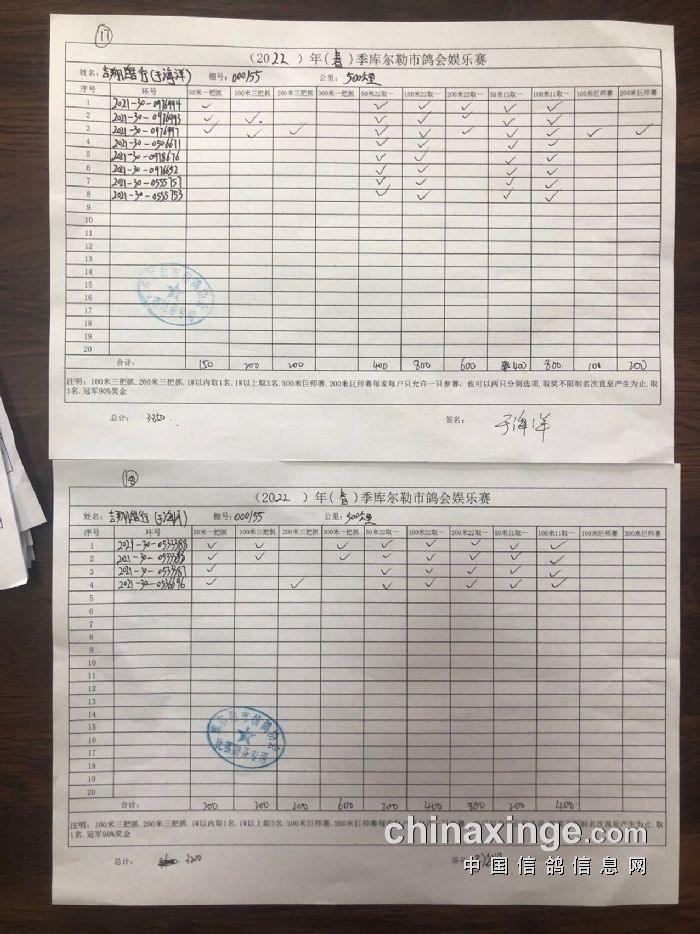 17
(2022)年(春)季库尔勒市鸽会娱乐赛
姓名:吉翔 (于海洋) 棚号:000155 公里:500公里
序号 环号 50米一把抓 100米三把抓 200米三把抓 300米一把抓 50米22取一 100米22取一 200米22取一 50米11取一 100米11取一 100米巨师赛 200米巨师赛
1 2021-30-0976994 ✓ ✓ ✓ ✓ ✓ ✓
2 2021-30-0976993 ✓ ✓ ✓ ✓ ✓ ✓ ✓
3 2021-30-0976997 ✓ ✓ ✓ ✓ ✓ ✓ ✓ ✓ ✓ ✓
4 2021-30-0506671 ✓ ✓ ✓ ✓
5 2021-30-0978676 ✓ ✓ ✓ ✓
6 2021-30-0976652 ✓ ✓ ✓ ✓
7 2021-30-0555757 ✓ ✓ ✓ ✓
8 2021-30-0555753 ✓ ✓ ✓ ✓
9
10
11
12
13
14
15
16
17
18
19
20
合计: 150 200 200 400 800 600 400 800 100 200
注明:100米三把抓.200米三把抓.1W以内取1名.1W以上取3名.100米巨师赛.200米巨师赛每家每户只允许一只参赛,也可以两只分别选项.取奖不限制名次直至产生为止.取
1名.冠军90%奖金
总计: 3850 签名: 于海洋
18
(2022)年(春)季库尔勒市鸽会娱乐赛
姓名:吉翔 棚号:000155 公里:500公里
序号 环号 50米一把抓 100米三把抓 200米三把抓 300米一把抓 50米22取一 100米22取一 200米22取一 50米11取一 100米11取一 100米巨师赛 200米巨师赛
1 ✓ ✓ ✓ ✓ ✓ ✓ ✓ ✓
2 ✓ ✓ ✓ ✓ ✓ ✓ ✓ ✓
3 ✓ ✓ ✓ ✓ ✓ ✓
4 2021-30-0536696 ✓ ✓ ✓ ✓ ✓ ✓ ✓
5
6
7
8
9
10
11
12
13
14
15
16
17
18
19
20
合计: 200 200 100 600 200 400 800 200 400
注明:100米三把抓.200米三把抓.1W以内取1名.1W以上取3名.100米巨师赛.200米巨师赛每家
取奖不限制名次直至产生为止.取
1名.冠军90%奖金
总计: 3200 签名
chinaxinge.com
中国信鸽信息网